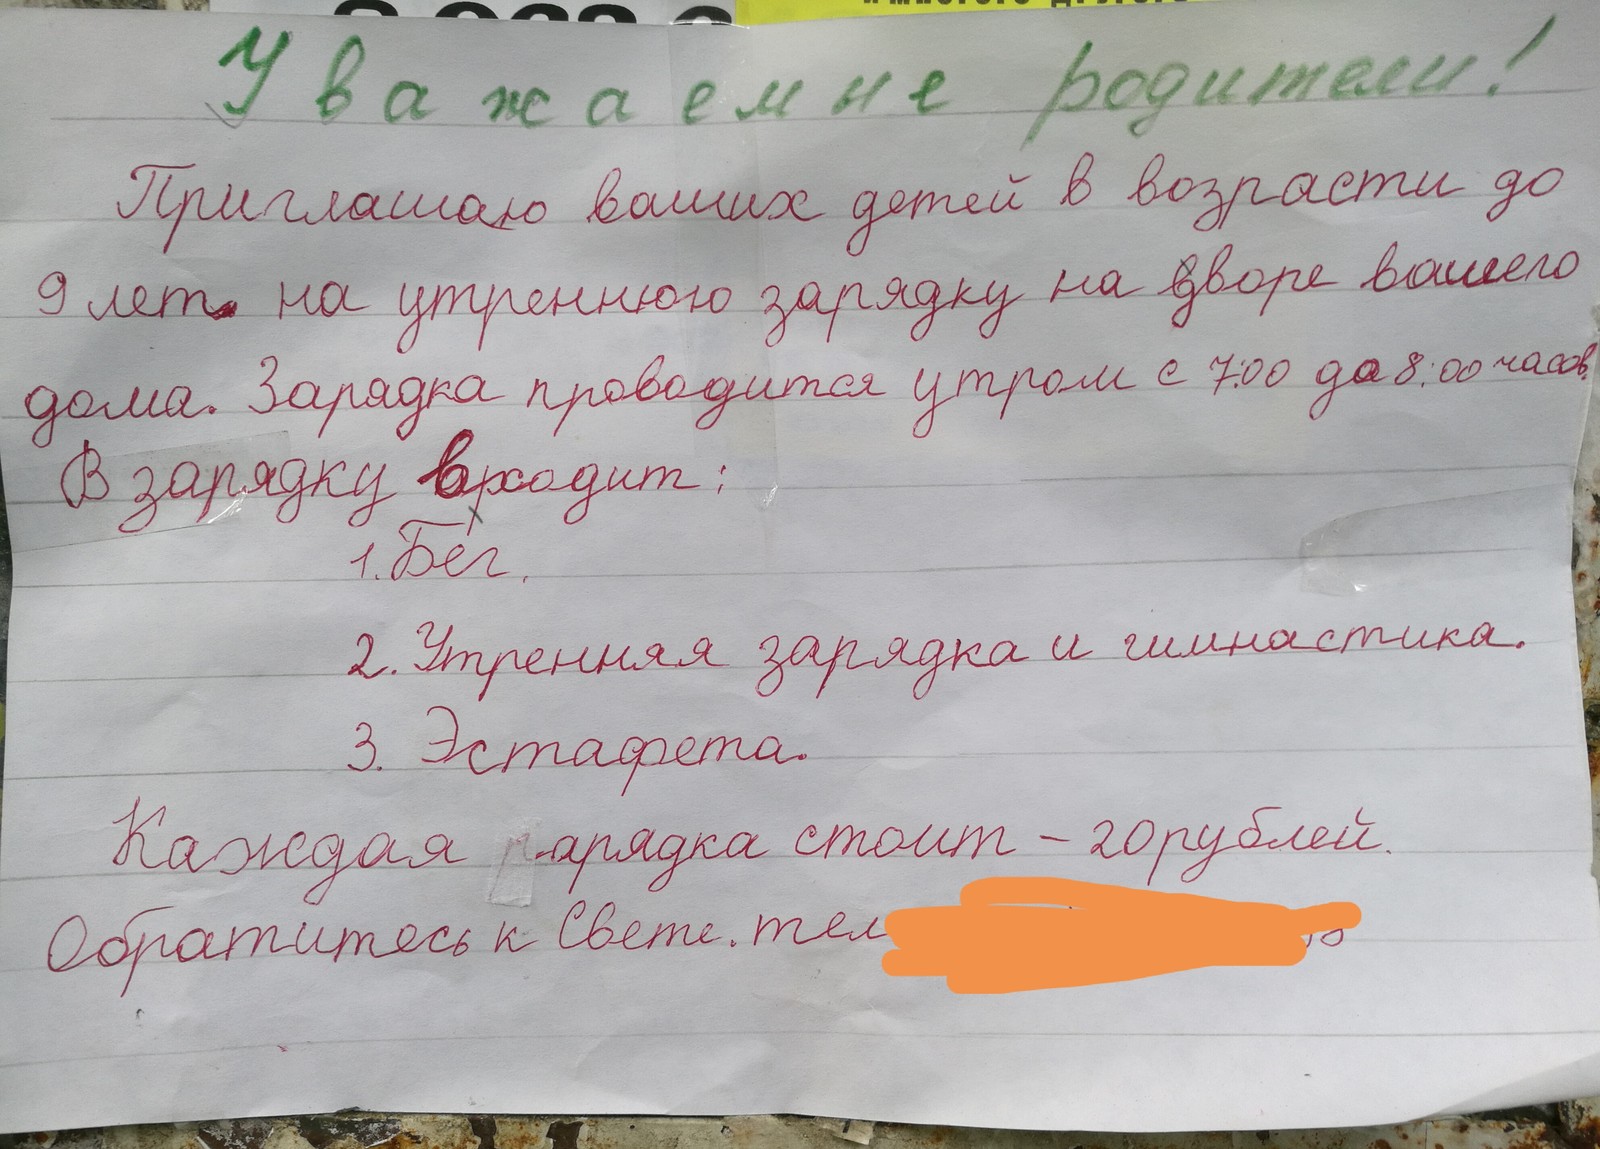 Уважаемые родители!
Приглашаю ваших детей в возрасти до
9 лет. на утреннюю зарядку на дворе вашего
дома. Зарядка проводится утром с 7:00 до 8:00 часов.
В зарядку входит:
1. Бег.
2. Утренняя зарядка и гимнастика.
3. Эстафета.
Каждая зарядка стоит - 20 рублей.
Обратитесь к Свете. тел